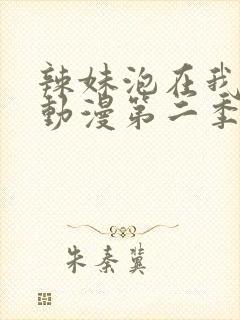 辣妹泡在我
動漫第二季
朱秦冀